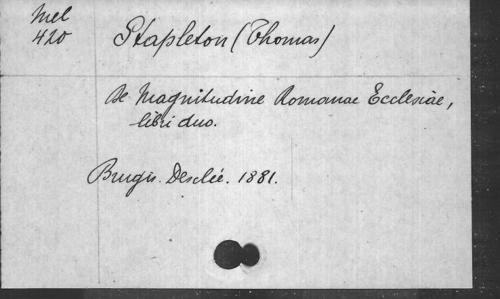 Mel
420
Stapleton (Thomas)
De Magnitudine Romanae Ecclesiae,
libri duo.
Brugis. Desclée. 1881.